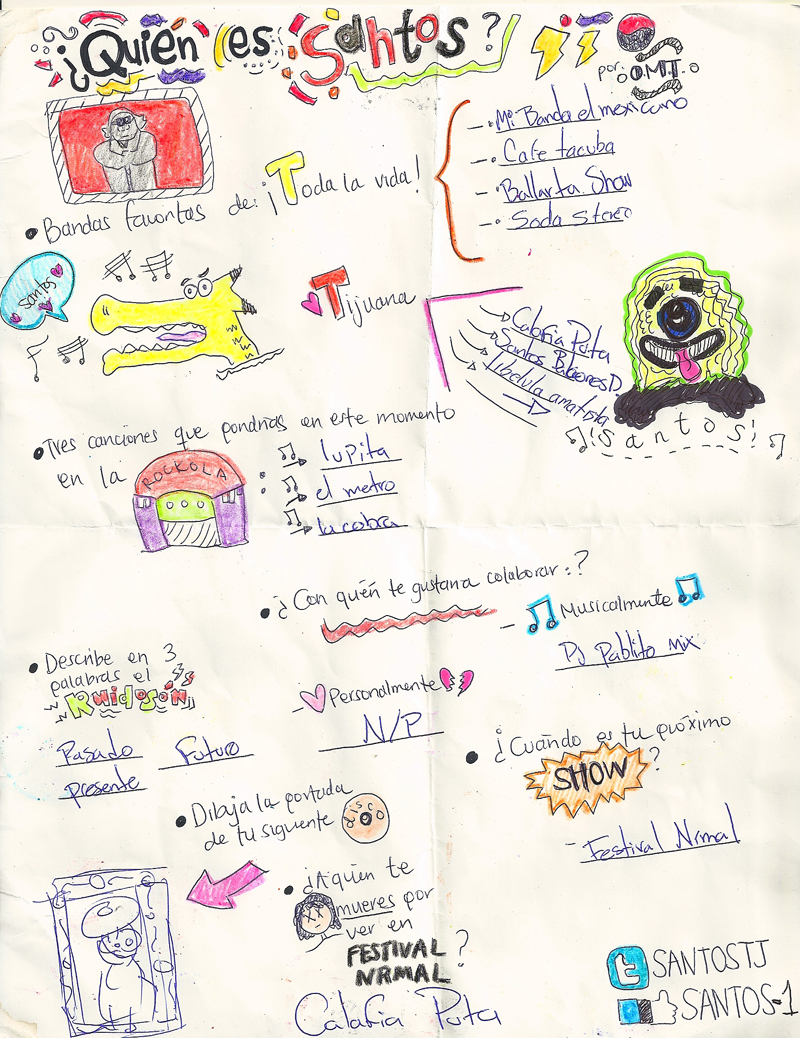 ¿Quién es Santos?
por: O.M.T.
• Bandas favoritas de: ¡Toda la vida!
- Mi Banda el mexicano
- Cafe tacuba
- Ballarta Show
- Soda Stereo
Santos
Tijuana
Calafia Puta
Santos
Libelula amatista
¡Santos!
• Tres canciones que pondrias en este momento
en la ROCKOLA :
lupita
el metro
la cobra
• ¿Con quién te gustaria colaborar:?
- Musicalmente
Dj Pablito mix
- Personalmente
N/P
• Describe en 3
palabras el
Ruidosón
Pasado Futuro
presente
• ¿Cuándo es tu próximo
SHOW?
- Festival Nrmal
• Dibaja la portada
de tu siguiente disco
• ¿A quien te
mueres por
ver en
FESTIVAL
NRMAL?
Calafia Puta
t SANTOSTJ
SANTOS-1